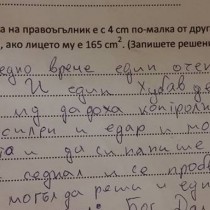 а на правоъгълник е с 4 cm по-малка от друг
, ако лицето му е 165 cm². (Запишете решени
едно време един отец
И един хубав д
му да доха контролн
силен и едар и мо
та и да си напише
седнал и се пров
могъл да реши и ед
Бог Да